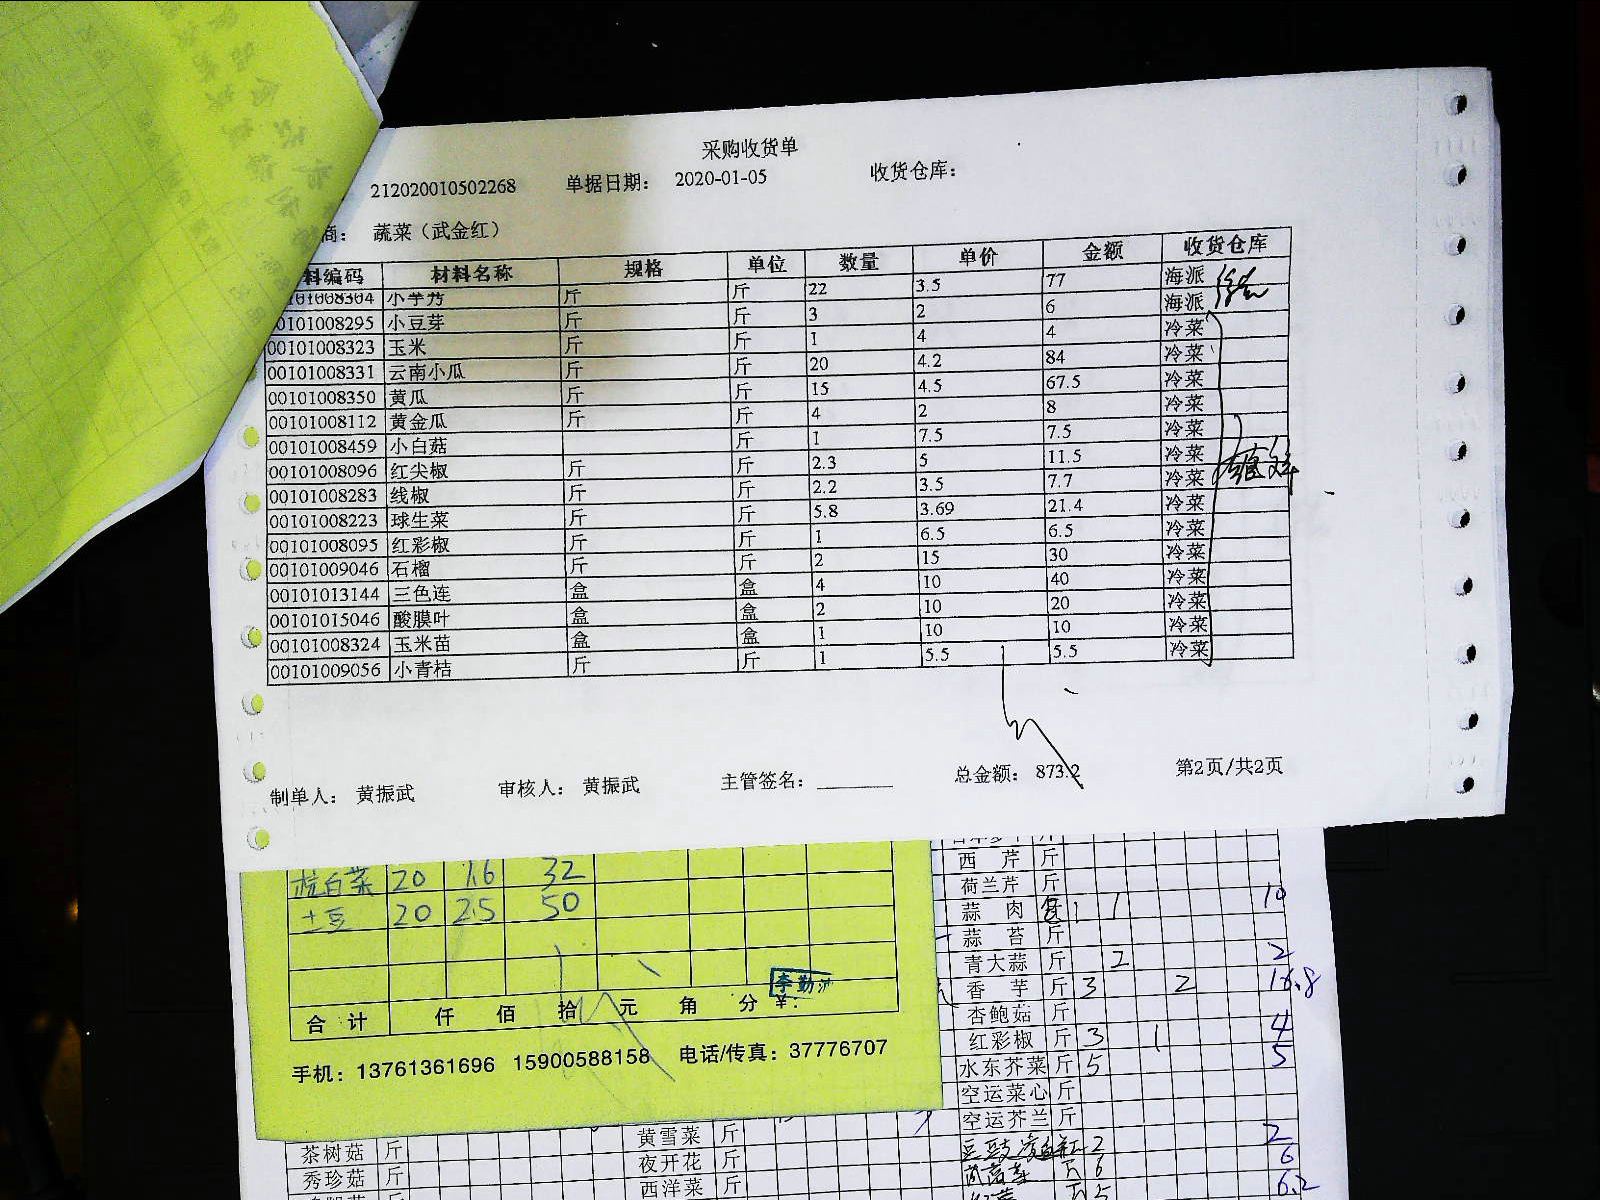 采购收货单
212020010502268 单据日期： 2020-01-05 收货仓库：
商： 蔬菜（武金红）
料编码 材料名称 规格 单位 数量 单价 金额 收货仓库
0101008304 小芋艿 斤 斤 22 3.5 77 海派
00101008295 小豆芽 斤 斤 3 2 6 海派
00101008323 玉米 斤 斤 1 4 4 冷菜
00101008331 云南小瓜 斤 斤 20 4.2 84 冷菜
00101008350 黄瓜 斤 斤 15 4.5 67.5 冷菜
00101008112 黄金瓜 斤 斤 4 2 8 冷菜
00101008459 小白菇 斤 1 7.5 7.5 冷菜
00101008096 红尖椒 斤 斤 2.3 5 11.5 冷菜
00101008283 线椒 斤 斤 2.2 3.5 7.7 冷菜
00101008223 球生菜 斤 斤 5.8 3.69 21.4 冷菜
00101008095 红彩椒 斤 斤 1 6.5 6.5 冷菜
00101009046 石榴 斤 斤 2 15 30 冷菜
00101013144 三色连 盒 盒 4 10 40 冷菜
00101015046 酸膜叶 盒 盒 2 10 20 冷菜
00101008324 玉米苗 盒 盒 1 10 10 冷菜
00101009056 小青桔 斤 斤 1 5.5 5.5 冷菜
制单人： 黄振武 审核人： 黄振武 主管签名： 总金额： 873.2 第2页/共2页
杭白菜 20 1.6 32
土豆 20 2.5 50
合计 仟 佰 拾 元 角 分 ¥：
手机：13761361696 15900588158 电话/传真：37776707
西芹 斤
荷兰芹 斤
蒜肉 1 1 10
蒜苔 斤
青大蒜 斤 2 2
香芋 斤 3 2 16.8
杏鲍菇 斤
红彩椒 斤 3 1 4
水东芥菜 斤 5 5
空运菜心 斤
空运芥兰 斤
茶树菇 斤 黄雪菜 斤 2 2
秀珍菇 斤 夜开花 斤 6 6
西洋菜 斤 5 6.2